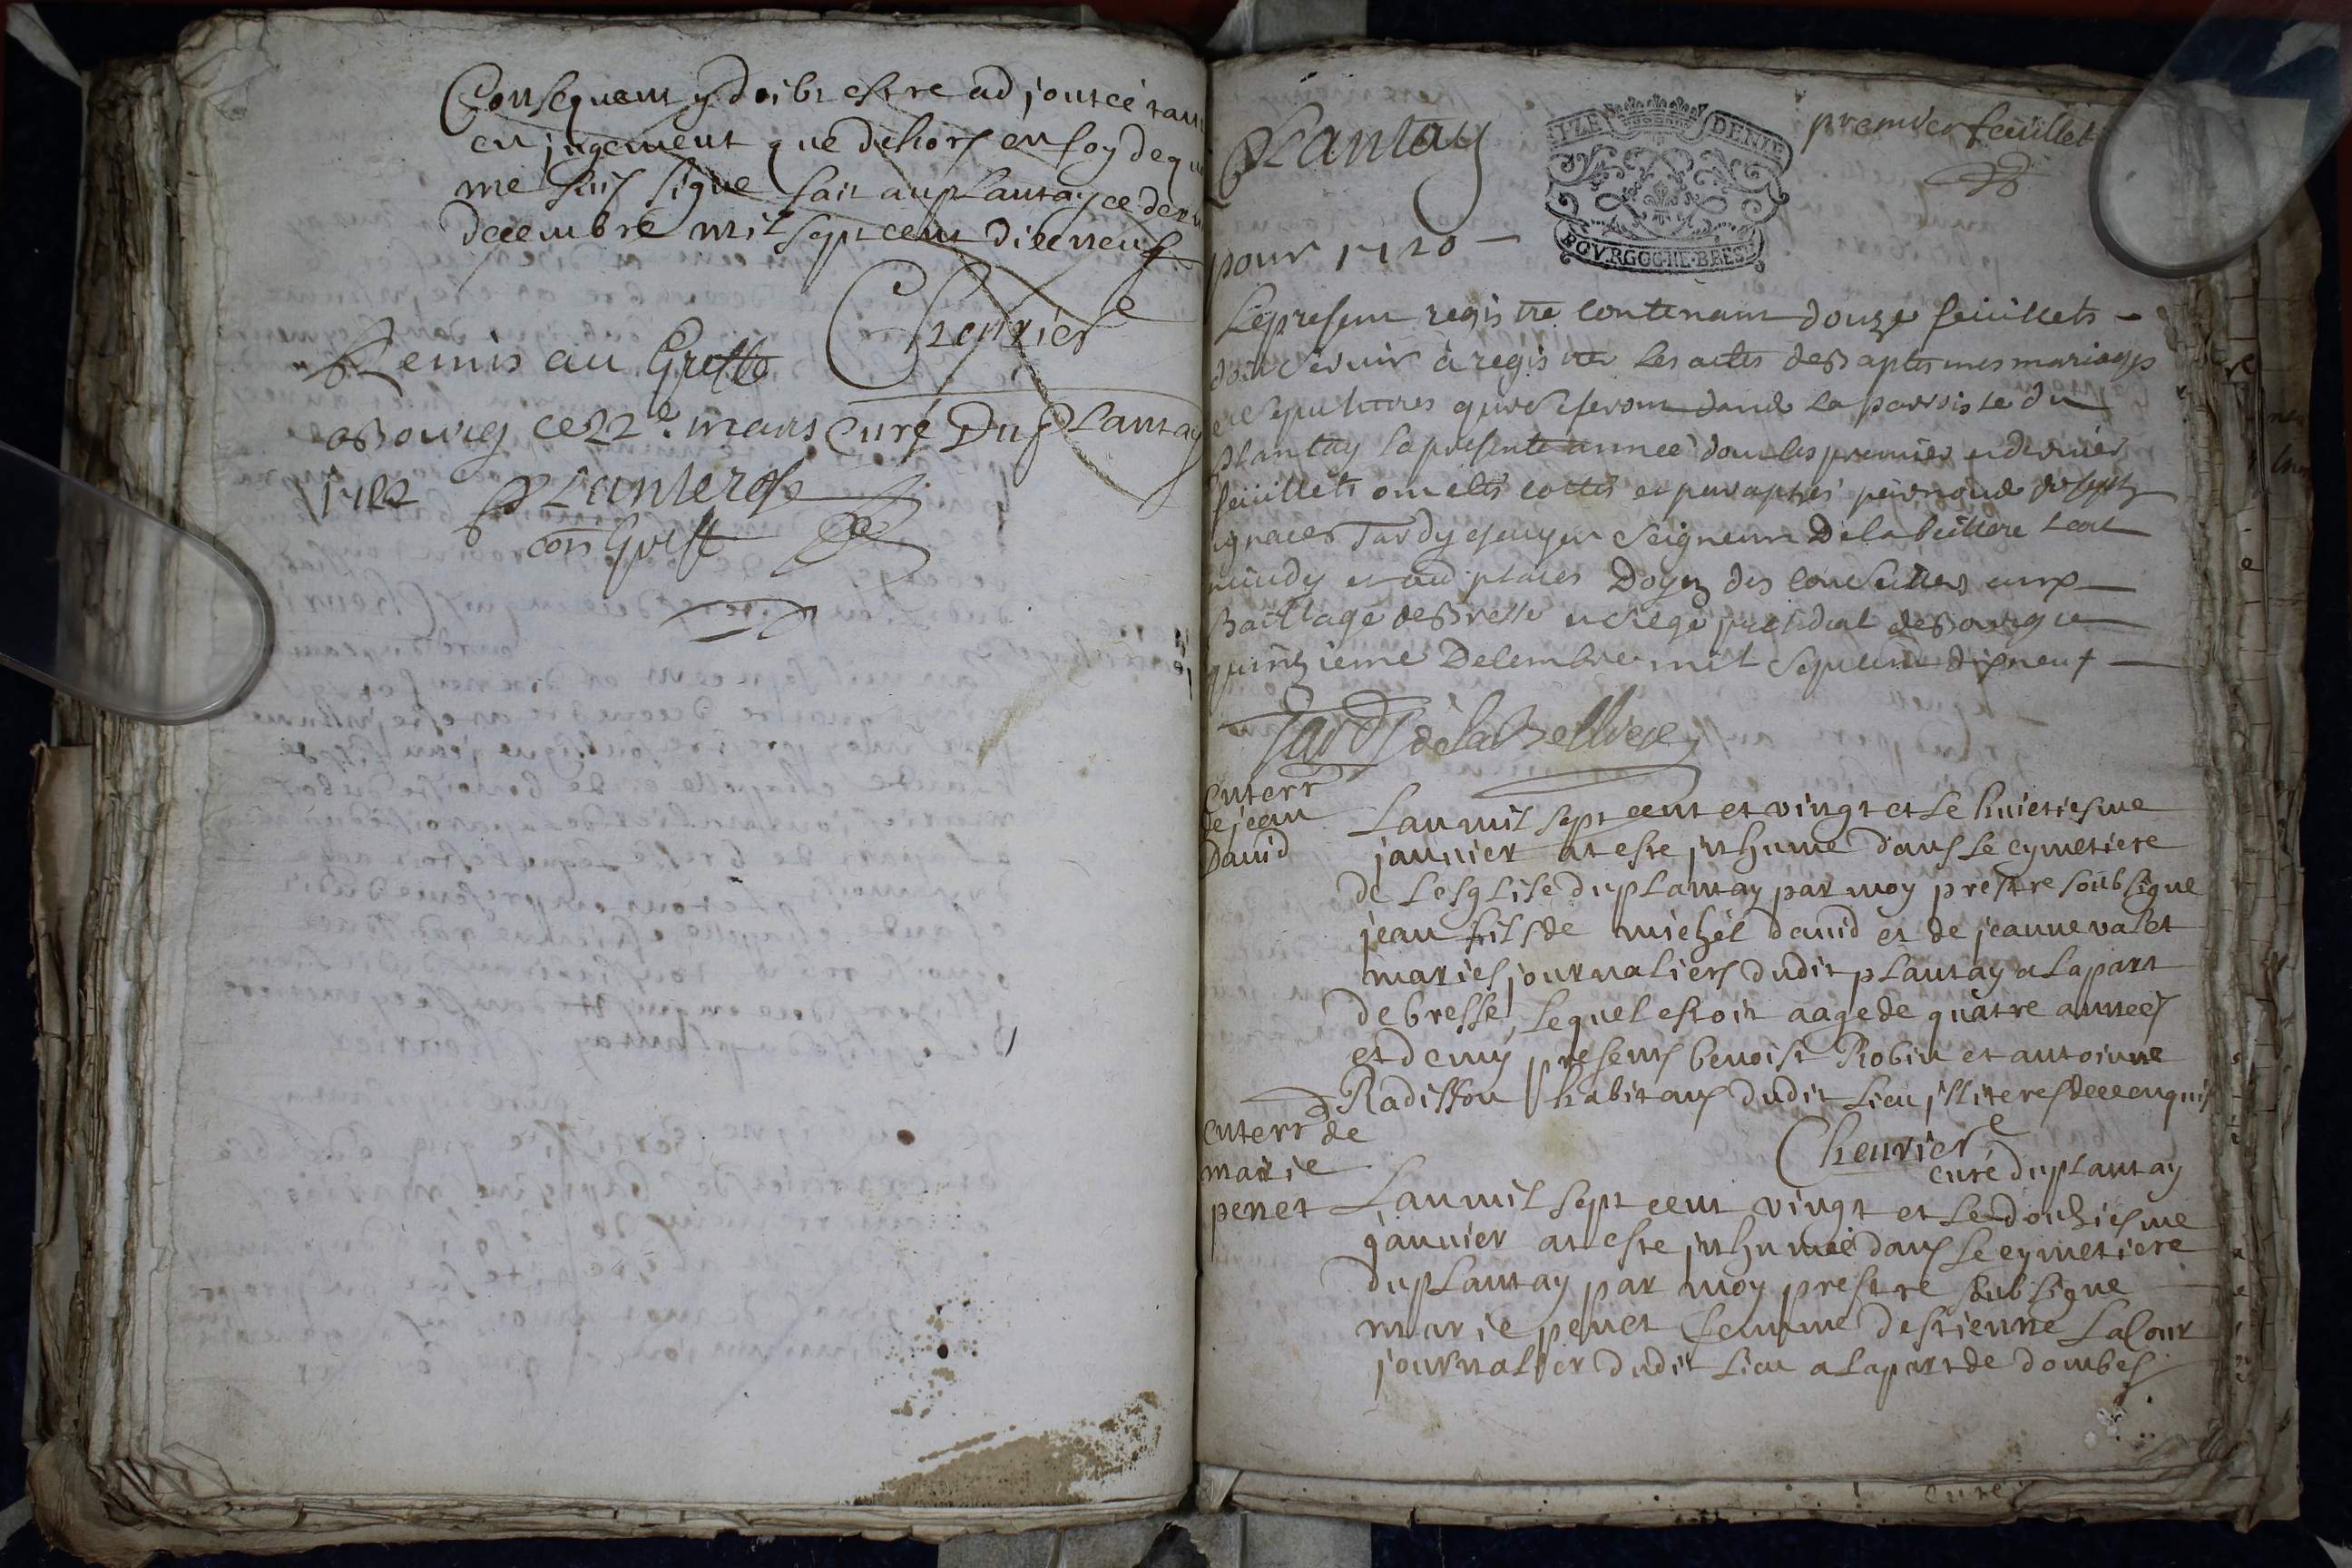 Consequent y doibt estre adjoutee tant
en jugement que dehors en foy de quoy
me suis signe fait au plantay ce dern
decembre mil sept cent diecneuf
Cheuvrier
curé Du plantay
Remis au Greffe
a Bourg ce 22e mars
1722
con Greff
Plantay
SIZE DENIE
BOVRGOGNE BRESSE
premier feüillet
pour 1720
Le present registre contenant douze feuillets
pour servir à registrer les actes de Baptesmes mariages
et sepultures qui se feront dans la parroisse du
plantay la presente année dont les premier et dernier
feuillets ont estés cottés et paraphés par nous Joseph
ignaces Tardy escuyer Seigneur De la beilliere
et aud places Doyen des conseillers aux
Bailliage de Bresse et siege presidial de Bourg ce
quinzieme Decembre mil sept cent dixneuf
Tardy de la Belliere
enterr
de jean
David
Lan mil sept cent et vingt et le huictiesme
januier at este inhume dans le cymetiere
de Lesglise du plantay par moy prestre soubsigne
jean fils de michel david et de jeanne valet
mariés journaliers dudit plantay a la part
de bresse, lequel estoit aage de quatre années
et demy presents benoist Robin et antoinne
Radisson habitans dudit Lieu illiteres de ce enquis
Cheuvrier
curé du plantay
enterr de
marie
penet
Lan mil sept cent vingt et le douziesme
januier at este inhumée dans le cymetiere
du plantay par moy prestre soubsigne
marie penet femme destienne Lacour
journalier dudit Lieu a la part de dombes
curé